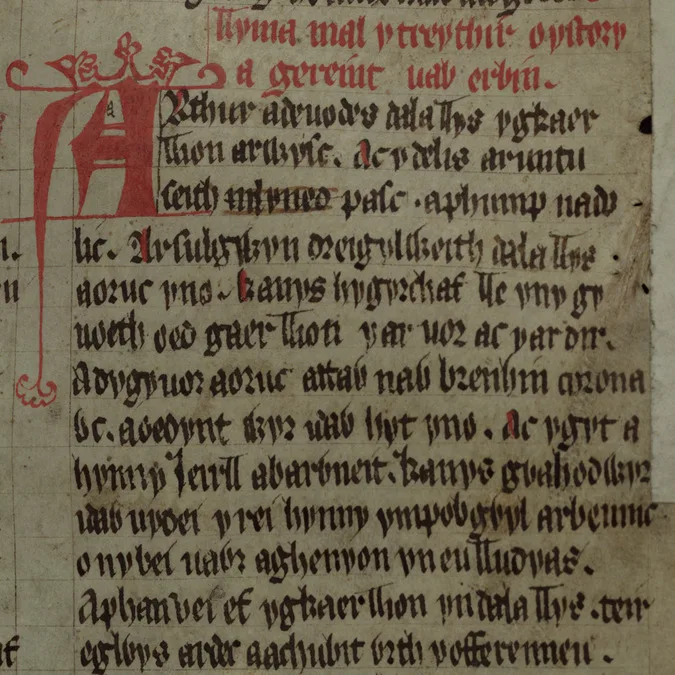 llyma mal y treythir o ystory
a gereint uab erbin.
ARthur a deuodes dala llys ygkaer
llion ar wysc. Ac y delis ar untu
seith mlyned pasc. a phump nado
lic. Ar sulgỽyn dreigylweith dala llys
a oruc yno. kanys hygyrchaf lle yn y gy
uoeth oed gaer llion y ar uor ac y ar dir.
A dygyuor a oruc attaỽ naỽ brenhin corona
ỽc. a oedynt wyr idaỽ hyt yno. Ac ygyt a
hynny Ieirll a barỽneit. kanys gỽahodwyr
idaỽ uydei y rei hynny ym pob gỽyl arbennic
o ny bei uaỽr aghenyon yn eu lludyas.
A phan vei ef ygkaer llion yn dala llys. teir
eglỽys ardec a achubit ỽrth y offerenneu.